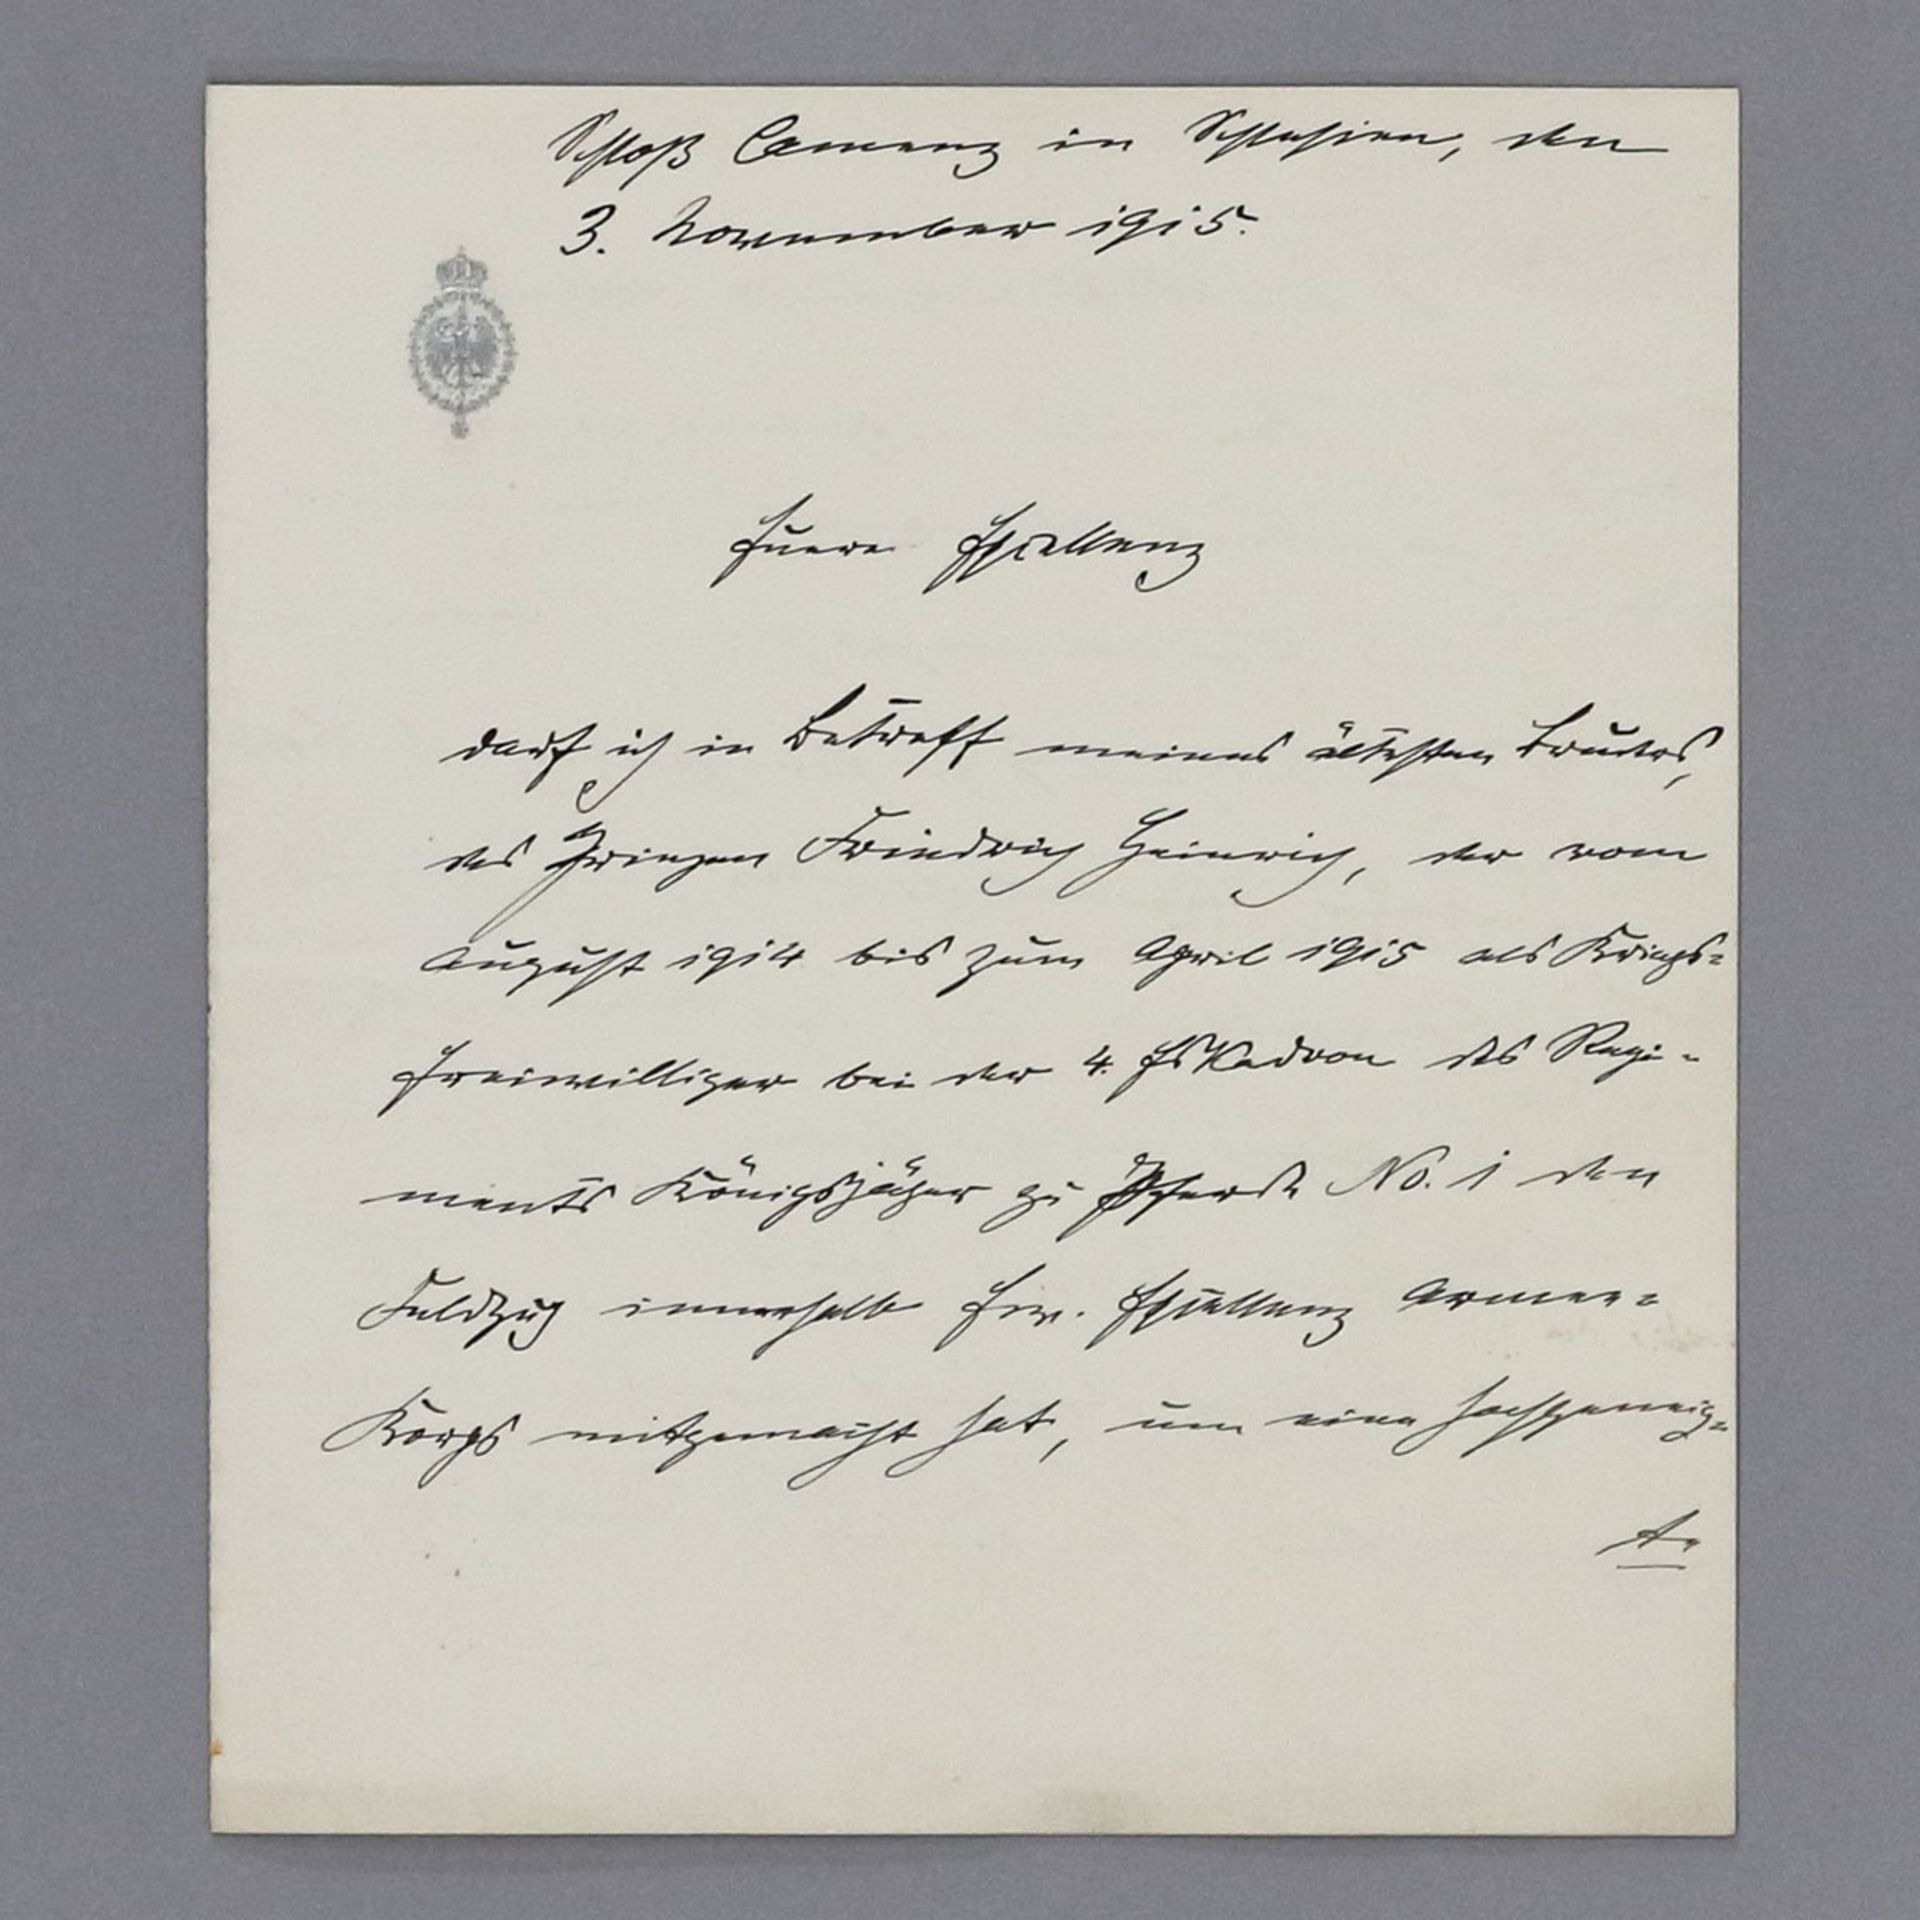 Schloß Camenz in Schlesien, den
3. November 1915.
Euere Exzellenz
darf ich in Betreff meines ältesten Bruders,
des Prinzen Friedrich Heinrich, der vom
August 1914 bis zum April 1915 als Kriegs-
freiwilliger bei der 4. Eskadron des Regi-
ments Königsjäger zu Pferde No. 1 den
Feldzug innerhalb Eur. Exzellenz Armee-
Korps mitgemacht hat, um eine hochgeneig-
te